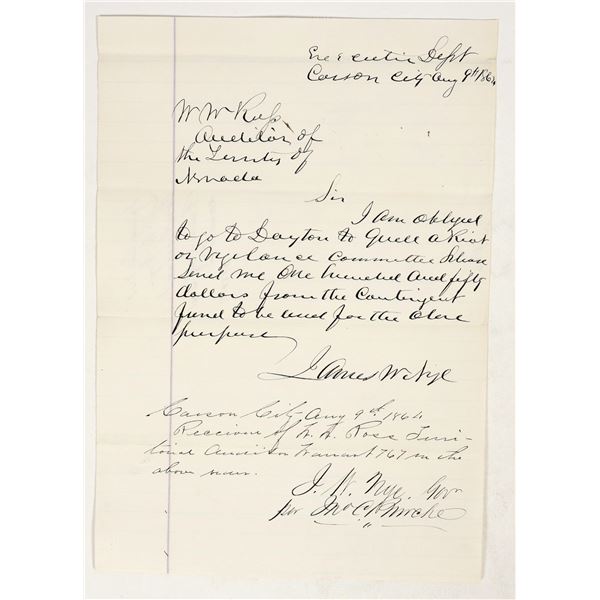 Executive Dept
Carson City Aug 9th 1864
W W Ross
Auditor of
the Territy of
Nevada
Sir
I am obliged
to go to Dayton to Quell a Riot
or Vigilance Committee Please
Send me One hundred And fifty
dollars from the Contingent
fund to be used for the above
purpose
James W. Nye
Carson City Aug 9th 1864
Received of W. W. Ross Terri-
torial Auditor Warrant 767 in the
above sum.
J. W. Nye, Govr
per Jno C.